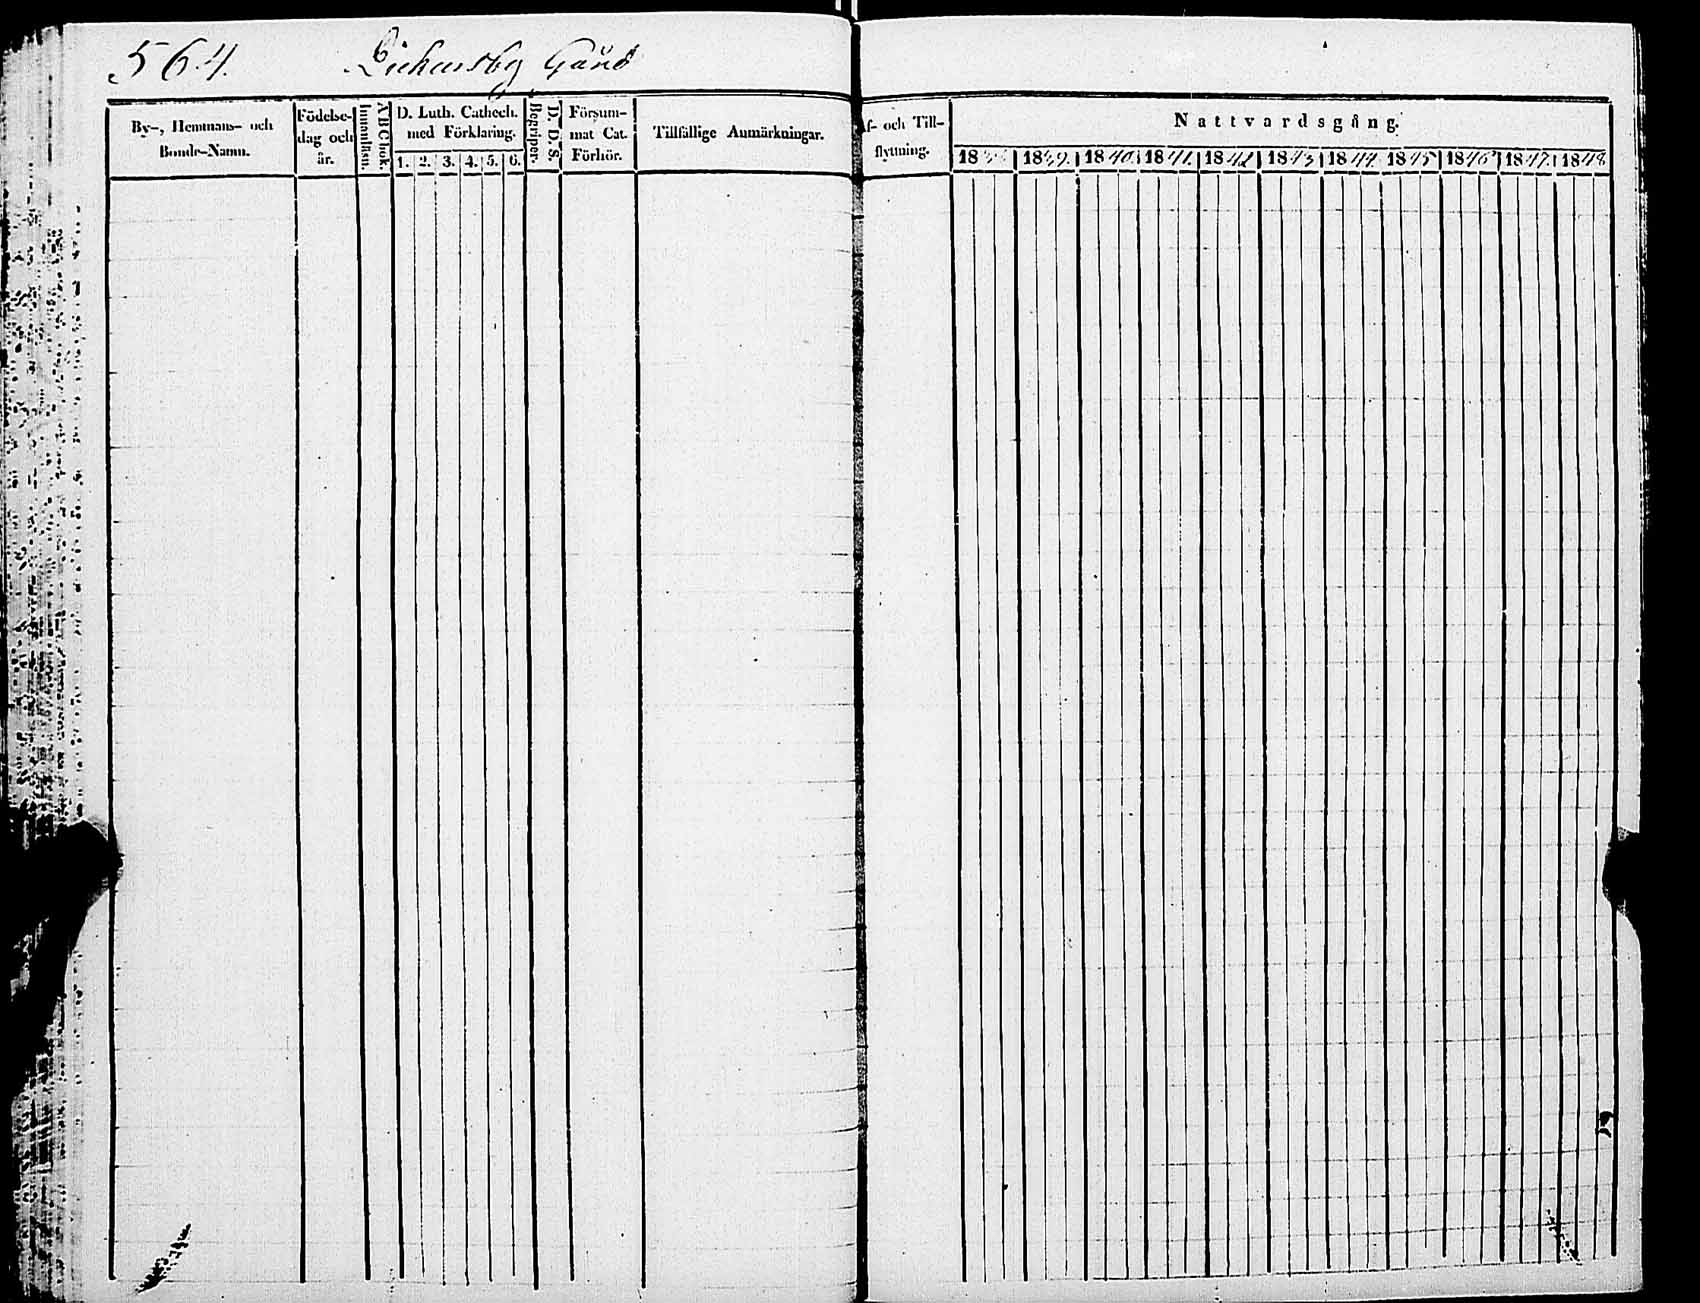 564.
By-, Hemmans- och
Bonde-Namn.
Födelse-
dag och
år.
A B C bok.
Innanläsn.
D. Luth. Cathech.
med Förklaring.
1. 2. 3. 4. 5. 6.
D. D. S.
Begriper.
Försum-
mat Cat.
Förhör.
Tillfällige Anmärkningar.
f- och Till-
flyttning.
Nattvardsgång.
18 1839 1840 1841 1842 1843 1844 1845 1846 1847 1848